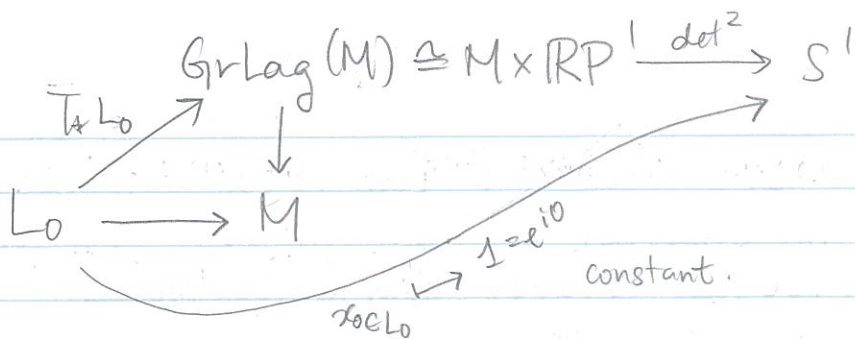 GrLag(M) ≅ M×RP¹ det² S¹
T_* L₀
L₀ M
x₀∈L₀ ↦ 1=e^{i0}
constant.